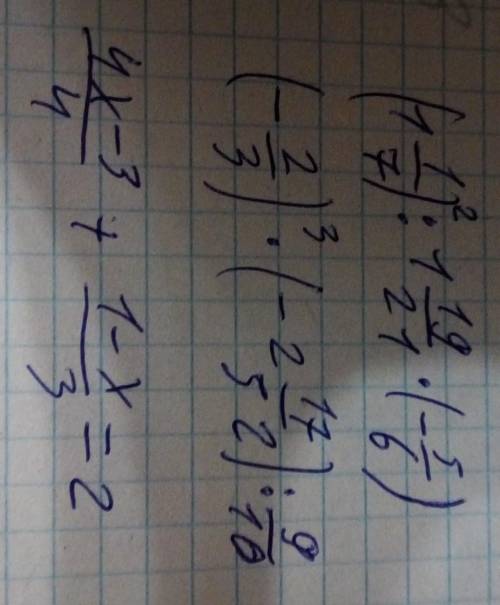 (1 1/7)² : 1 19/21 · (-5/6)
(-2/3)³ · (-2 17/52) : 9/10
4x-3/4 + 1-x/3 = 2